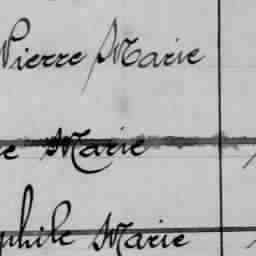 Pierre Marie
e Marie
phile Marie